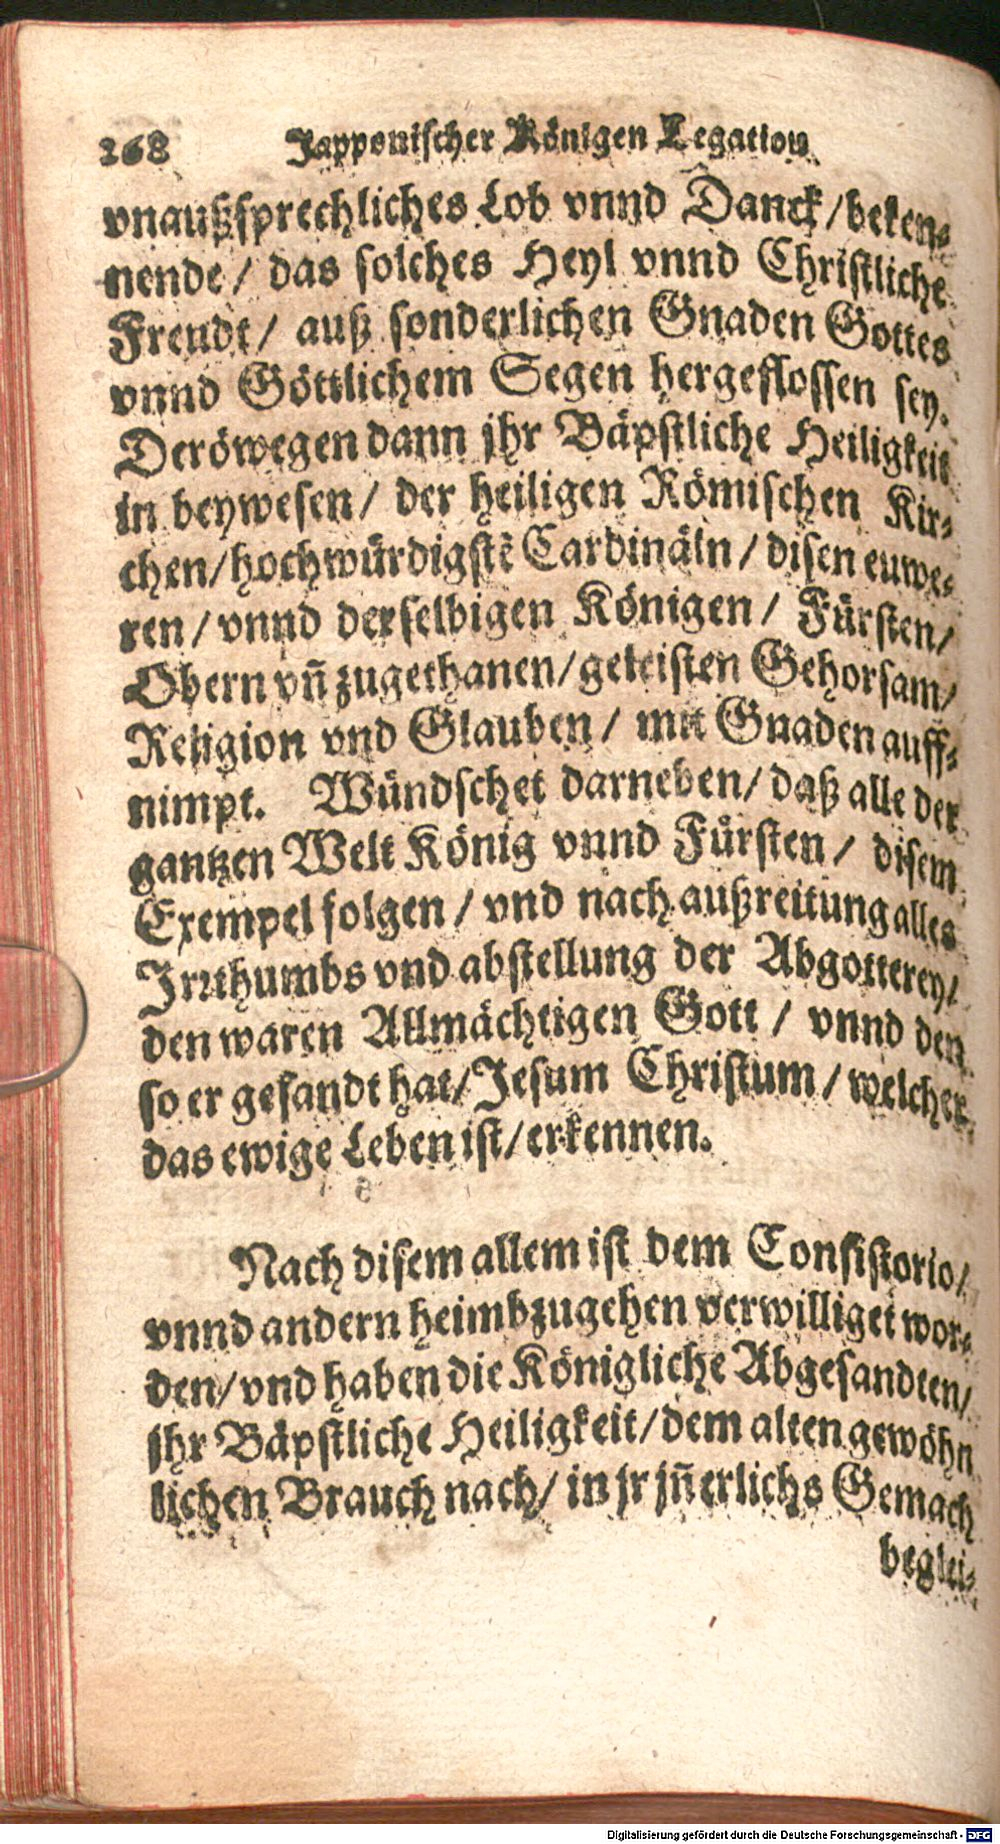 268 Japponischer Königen Legation
vnaußsprechliches Lob vnnd Danck/beken⸗
nende/ das solches Heyl vnnd Christliche
Freudt/ auß sonderlichen Gnaden Gottes
vnnd Göttlichem Segen hergeflossen sey.
Deröwegen dann jhr Bäpstliche Heiligkeit
in beywesen/ der heiligen Römischen Kir⸗
chen/hochwürdigstē Cardinäln/ disen euwe⸗
ren/ vnnd derselbigen Königen/ Fürsten/
Obern vñ zugethanen/geleisten Gehorsam/
Religion vnd Glauben/ mit Gnaden auff⸗
nimpt. Wündschet darneben/ daß alle der
gantzen Welt König vnnd Fürsten/ disem
Exempel folgen/ vnd nach außreitung alles
Irrthumbs vnd abstellung der Abgötterey/
den waren Allmächtigen Gott/ vnnd den
so er gesandt hat/Jesum Christum/ welcher
das ewige Leben ist/erkennen.
Nach disem allem ist dem Consistorio/
vnnd andern heimbzugehen verwilliget wor⸗
den/vnd haben die Königliche Abgesandten/
jhr Bäpstliche Heiligkeit/dem alten gewöhn
lichen Brauch nach/ in jr jñerlichs Gemach
beglei⸗
Digitalisierung gefördert durch die Deutsche Forschungsgemeinschaft - DFG